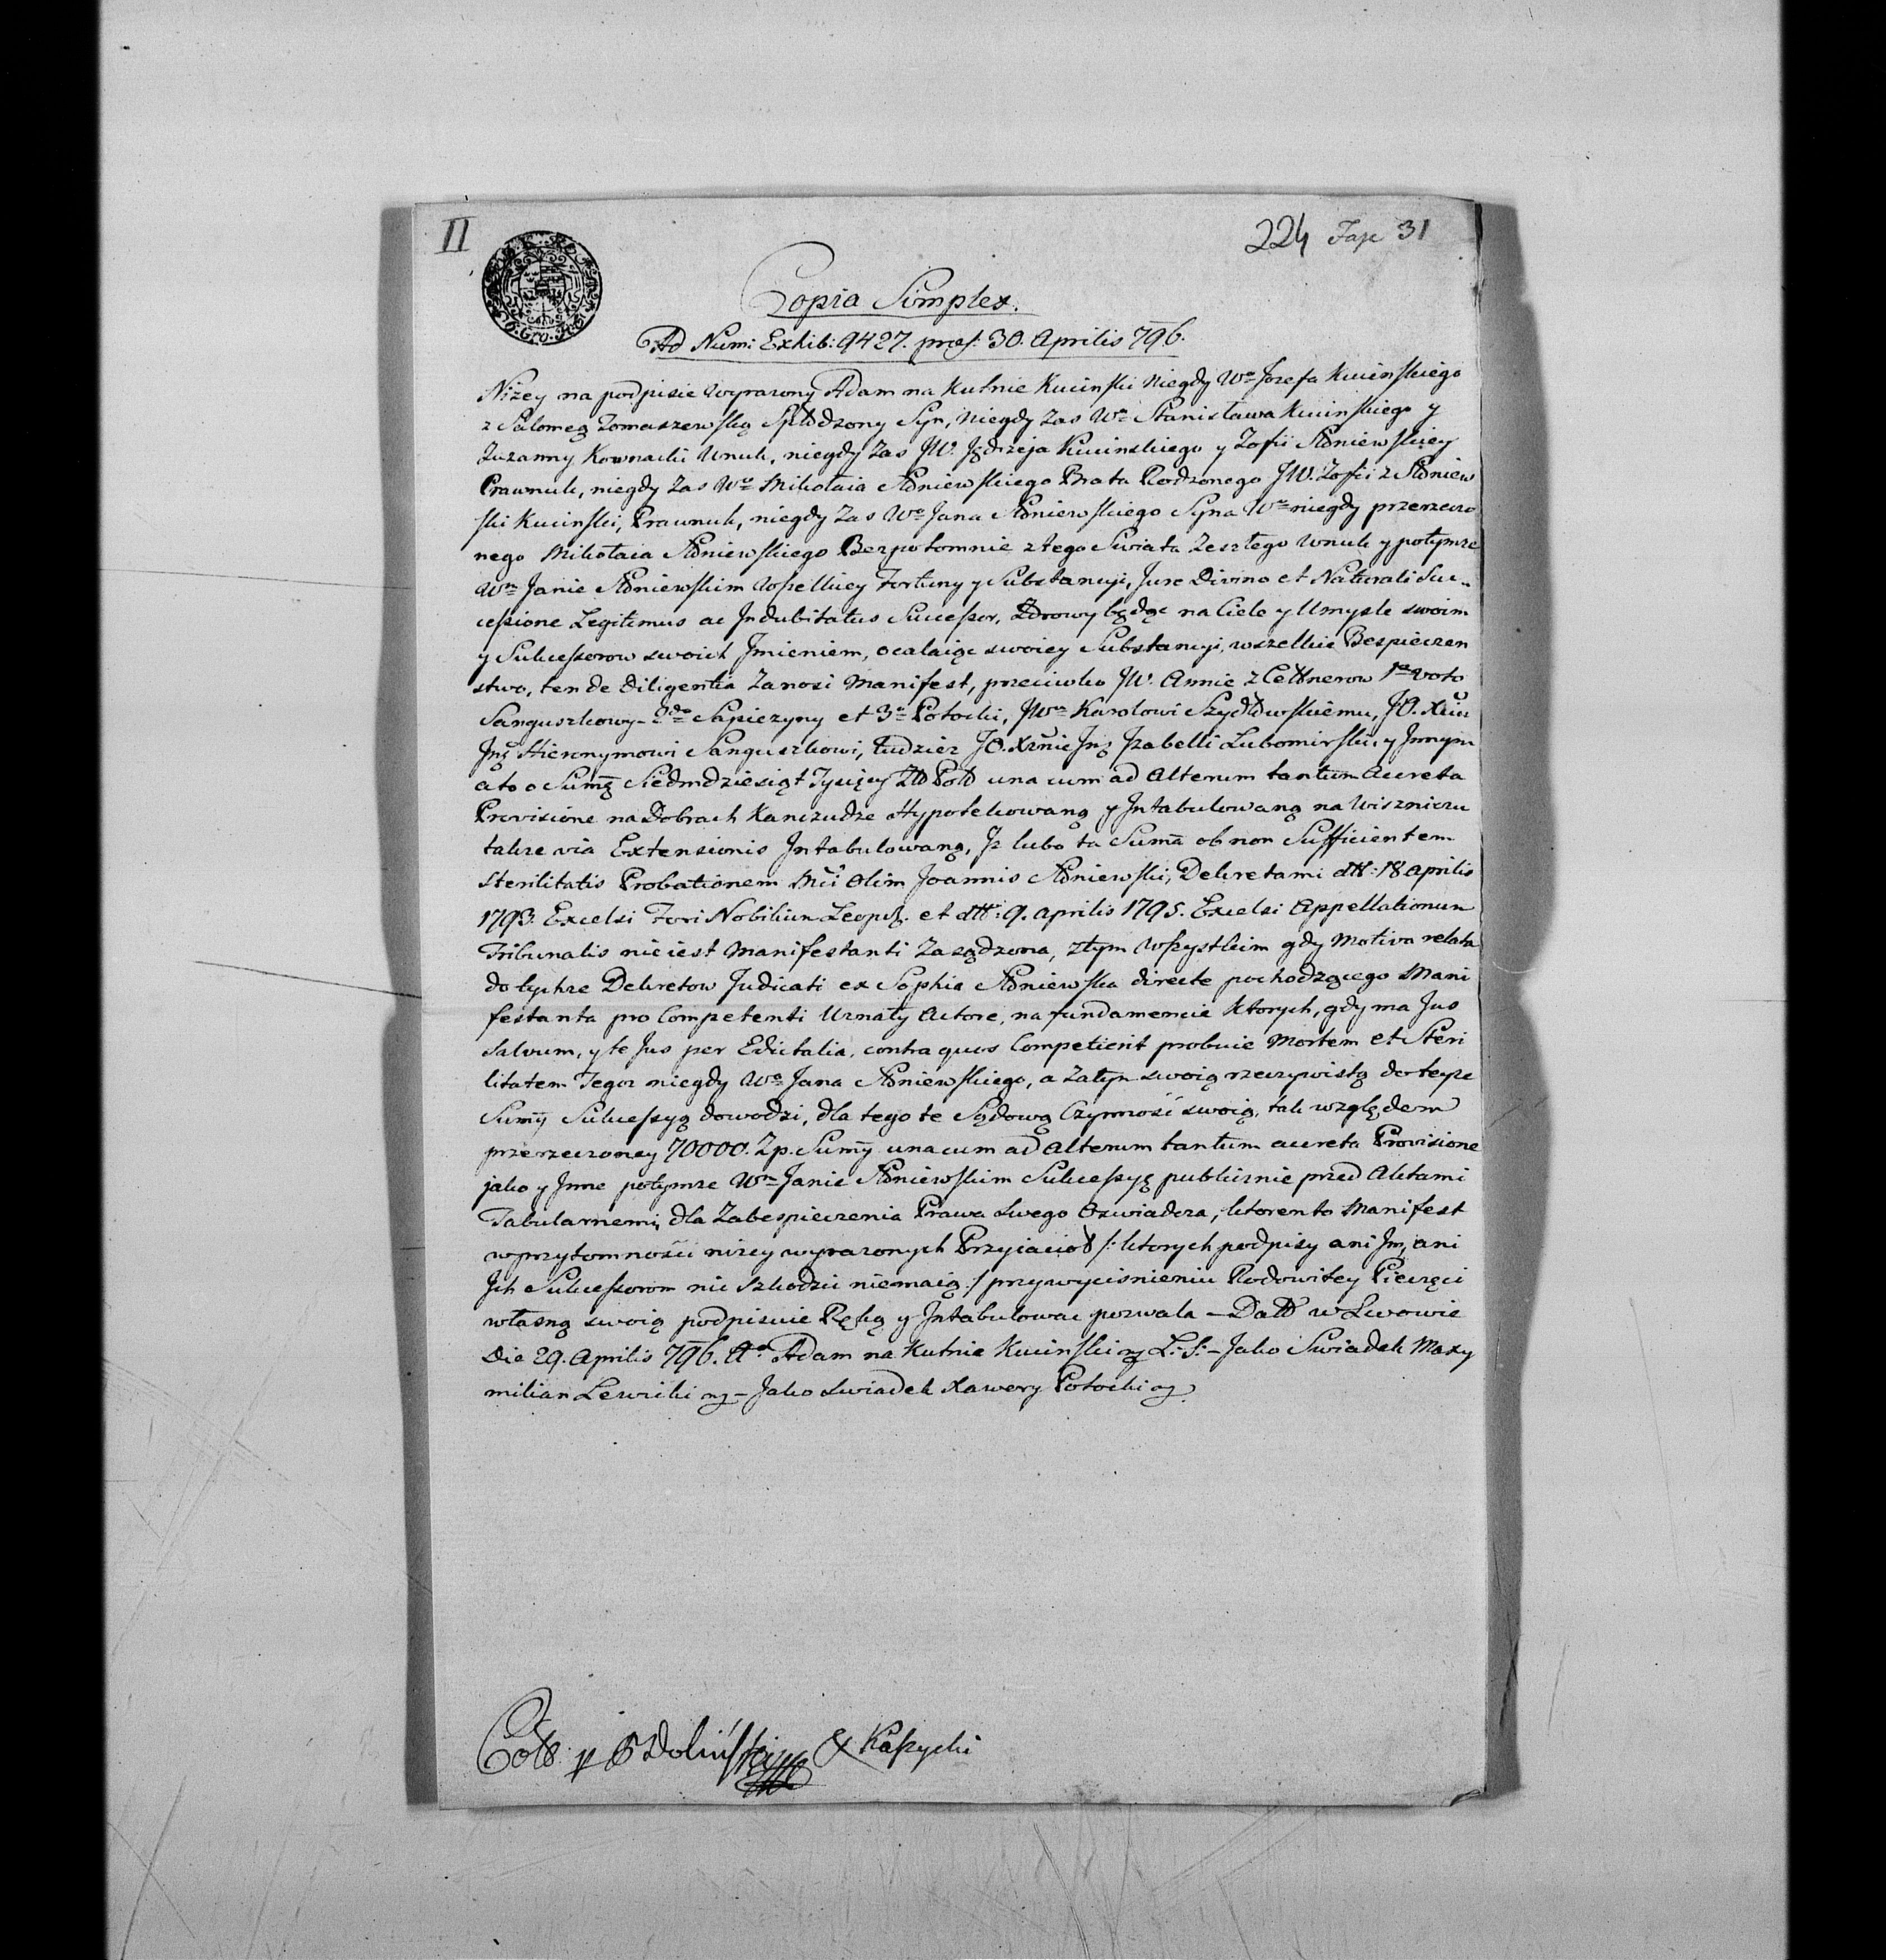 II
224 Fasc 31
Copia Simplex.
Ad Num: Exhib: 9427. præs: 30. Aprilis 796.
Niżey na podpisie wyrażony Adam na Kutnie Kucinski niegdy Wo Jozefa Kucinskiego
z Salomeą Tomaszewską Spłodzony Syn, niegdy zas Wo Stanisława Kucinskiego y
Zuzanny Kownacki Wnuk, niegdy zas JW. Jędrzeja Kucinskiego y Zofii Słoniewskiey
Prawnuk, niegdy zas Wo Mikołaia Słoniewskiego Brata Rodzonego JW. Zofii z Słoniew
ski Kucinski, Prawnuk, niegdy zas Wo Jana Słoniewskiego Syna Wo niegdy przerzeczo
nego Mikołaia Słoniewskiego Bezpotomnie z tego Swiata Zeszłego Wnuk y potymże
Wm Janie Słoniewskim Wszelkiey Fortuny y Substancyi, Jure Divino et Naturali Suc-
cessione Legitimus ac Indubitatus Successor, Zdrowy będąc na Ciele y Umysle swoim
y Sukcessorow swoich Jmieniem, ocalaiąc swoiey Substancyi, wszelkie Bespieczen
stwo, ten de Diligentia Zanosi Manifest, przeciwko JW. Annie z Cettnerow 1o voto
Sanguszkowy- 2do Sapiezyny et 3o Potocki, JWu Karolowi Szydłowskiemu, JO. Xciu
Jmę Hieronymowi Sanguszkowi, tudzież JO. Xżnie Jmę Izabelli Lubomirski, y Jnnym
a to o Sumę Siedmdziesiąt Tysięcy Złł Poll una cum ad alterum tantum accreta
Provisione na Dobrach Kanczudze Hypotekowaną y Intabulowaną na Wiszniczu
takze via Extensionis Intabulowaną, Jż lubo ta Suma ob non Sufficientem
Sterilitatis Probationem Mci olim Joannis Słoniewski, Dekretami dtt: 18 Aprilis
1793. Excelsi Fori Nobilium Leopol. et dtt: 9. Aprilis 1795. Excelsi Appellationum
Tribunalis nie iest Manifestanti Zasądzona, z tym wszystkim gdy Motiva relata
do tychże Dekretow Judicati ex Sophia Słoniewska directe pochodzącego Mani
festanta pro Competenti Uznały Actore, na fundamencie ktorych, gdy ma Jus
Salvum, y te Jus per Edictalia, contra quos Competierit probuie Mortem et Steri
litatem Tegoż niegdy Wo Jana Słoniewskiego, a Zatym swoią rzeczywistą do teyże
Sumy Sukcessyą dowodzi, dla tego te Sądową Czynność swoią, tak względem
przerzeczoney 70000. Zp. Sumy una cum ad alterum tantum accreta Provisione
jako y Jnne potymże Wm Janie Słoniewskim Sukcessyę publicznie przed Aktami
Tabularnemi, dla Zabespieczenia Prawa Swego Oswiadcza, ktoren to Manifest
w przytomności niżey wyrażonych Przyiacioł /: ktorych podpisy ani Jm, ani
Jch Sukcessorom nic szkodzic niemaią :/ przy wycisnieniu Rodowitey Pieczęci
własną swoią podpisuie Ręką y Intabulowac pozwala – Datt w Lwowie
Die 29. Aprilis 796. Ao Adam na Kutnie Kucinski mp L: S: – Jako Swiadek Maxy
milian Lewicki mp – Jako Swiadek Xawery Potocki mp
Coll: p Doliński & Kaszycki